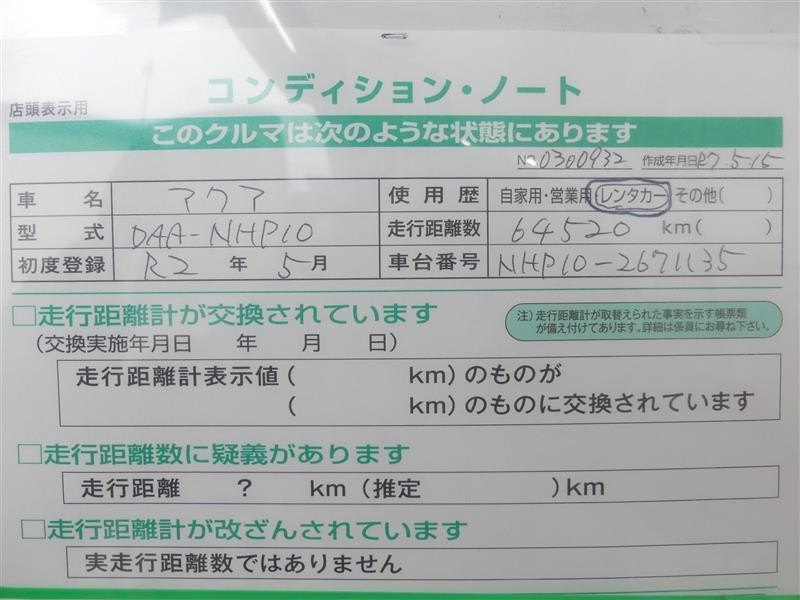 コンディション・ノート
店頭表示用
このクルマは次のような状態にあります
NO 0300932 作成年月日R7.5.15
車名 アクア 使用歴 自家用・営業用・レンタカー・その他( )
型式 DAA-NHP10 走行距離数 64520 km( )
初度登録 R2 年 5 月 車台番号 NHP10-2671135
□走行距離計が交換されています
注)走行距離計が取替えられた事実を示す帳票類
が備え付けてあります。詳細は係員にお尋ね下さい。
(交換実施年月日 年 月 日)
走行距離計表示値( km)のものが
( km)のものに交換されています
□走行距離数に疑義があります
走行距離 ? km(推定 )km
□走行距離計が改ざんされています
実走行距離数ではありません